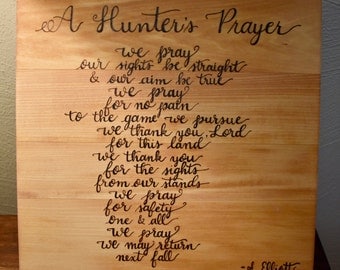 A Hunter's Prayer
we pray
our sights be straight
& our aim be true
we pray
for no pain
to the game we pursue
we thank you, Lord
for this land
we thank you
for the sights
from our stands
we pray
for safety
one & all
we pray
we may return
next fall
Elliott